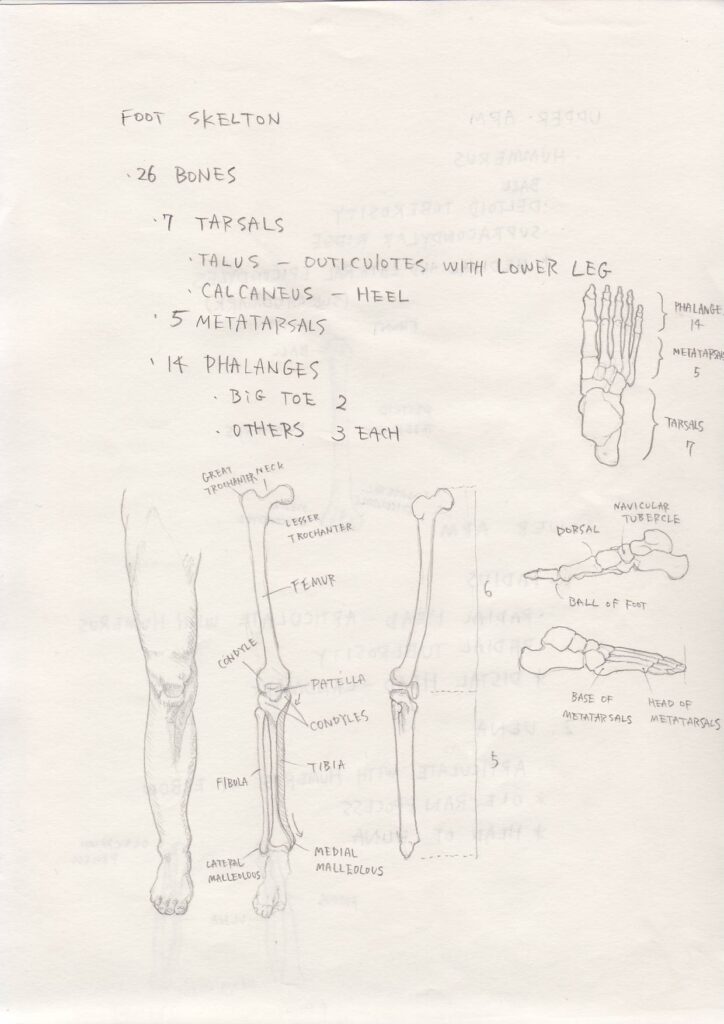 FOOT SKELTON
· 26 BONES
· 7 TARSALS
· TALUS – OUTICULOTES WITH LOWER LEG
· CALCANEUS – HEEL
· 5 METATARSALS
· 14 PHALANGES
· BIG TOE 2
· OTHERS 3 EACH
PHALANGE
14
METATARSA
5
TARSALS
7
GREAT
TROCHANTER
NECK
LESSER
TROCHANTER
FEMUR
CONDYLE
PATELLA
CONDYLES
FIBULA
TIBIA
LATERAL
MALLEOLOUS
MEDIAL
MALLEOLOUS
6
5
NAVICULAR
TUBERCLE
DORSAL
BALL OF FOOT
BASE OF
METATARSALS
HEAD OF
METATARSALS